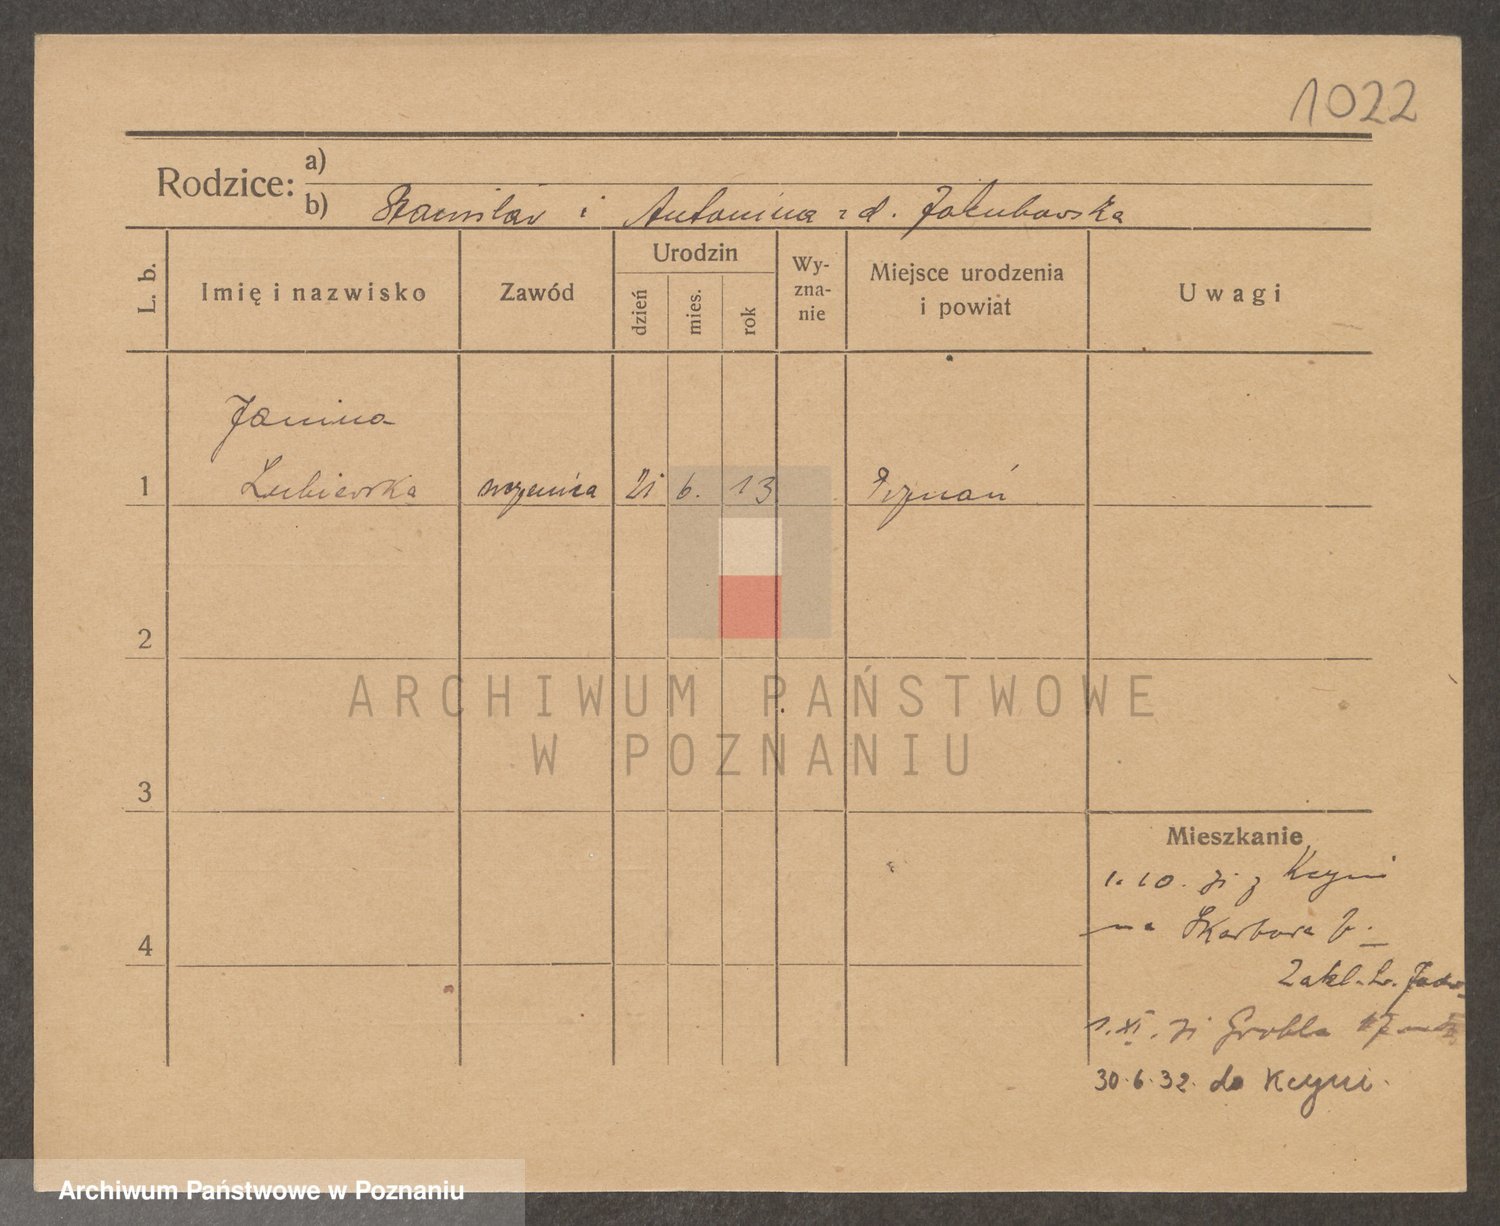 1022
Rodzice: a)
b) Stanisław i Antonina z d. Jakubowska
L. b.
Imię i nazwisko
Zawód
Urodzin
dzień
mies.
rok
Wy-
zna-
nie
Miejsce urodzenia
i powiat
Uwagi
Janina
1 Lubierska uczenica 21 6. 13 Poznań
2
ARCHIWUM PAŃSTWOWE
W POZNANIU
3
Mieszkanie
1. 10. 31 z Kcyni
na Skarbowa
4
Zakł. św. Jadw.
1. XI. 31 Grobla
30.6.32. do Kcyni.
Archiwum Państwowe w Poznaniu